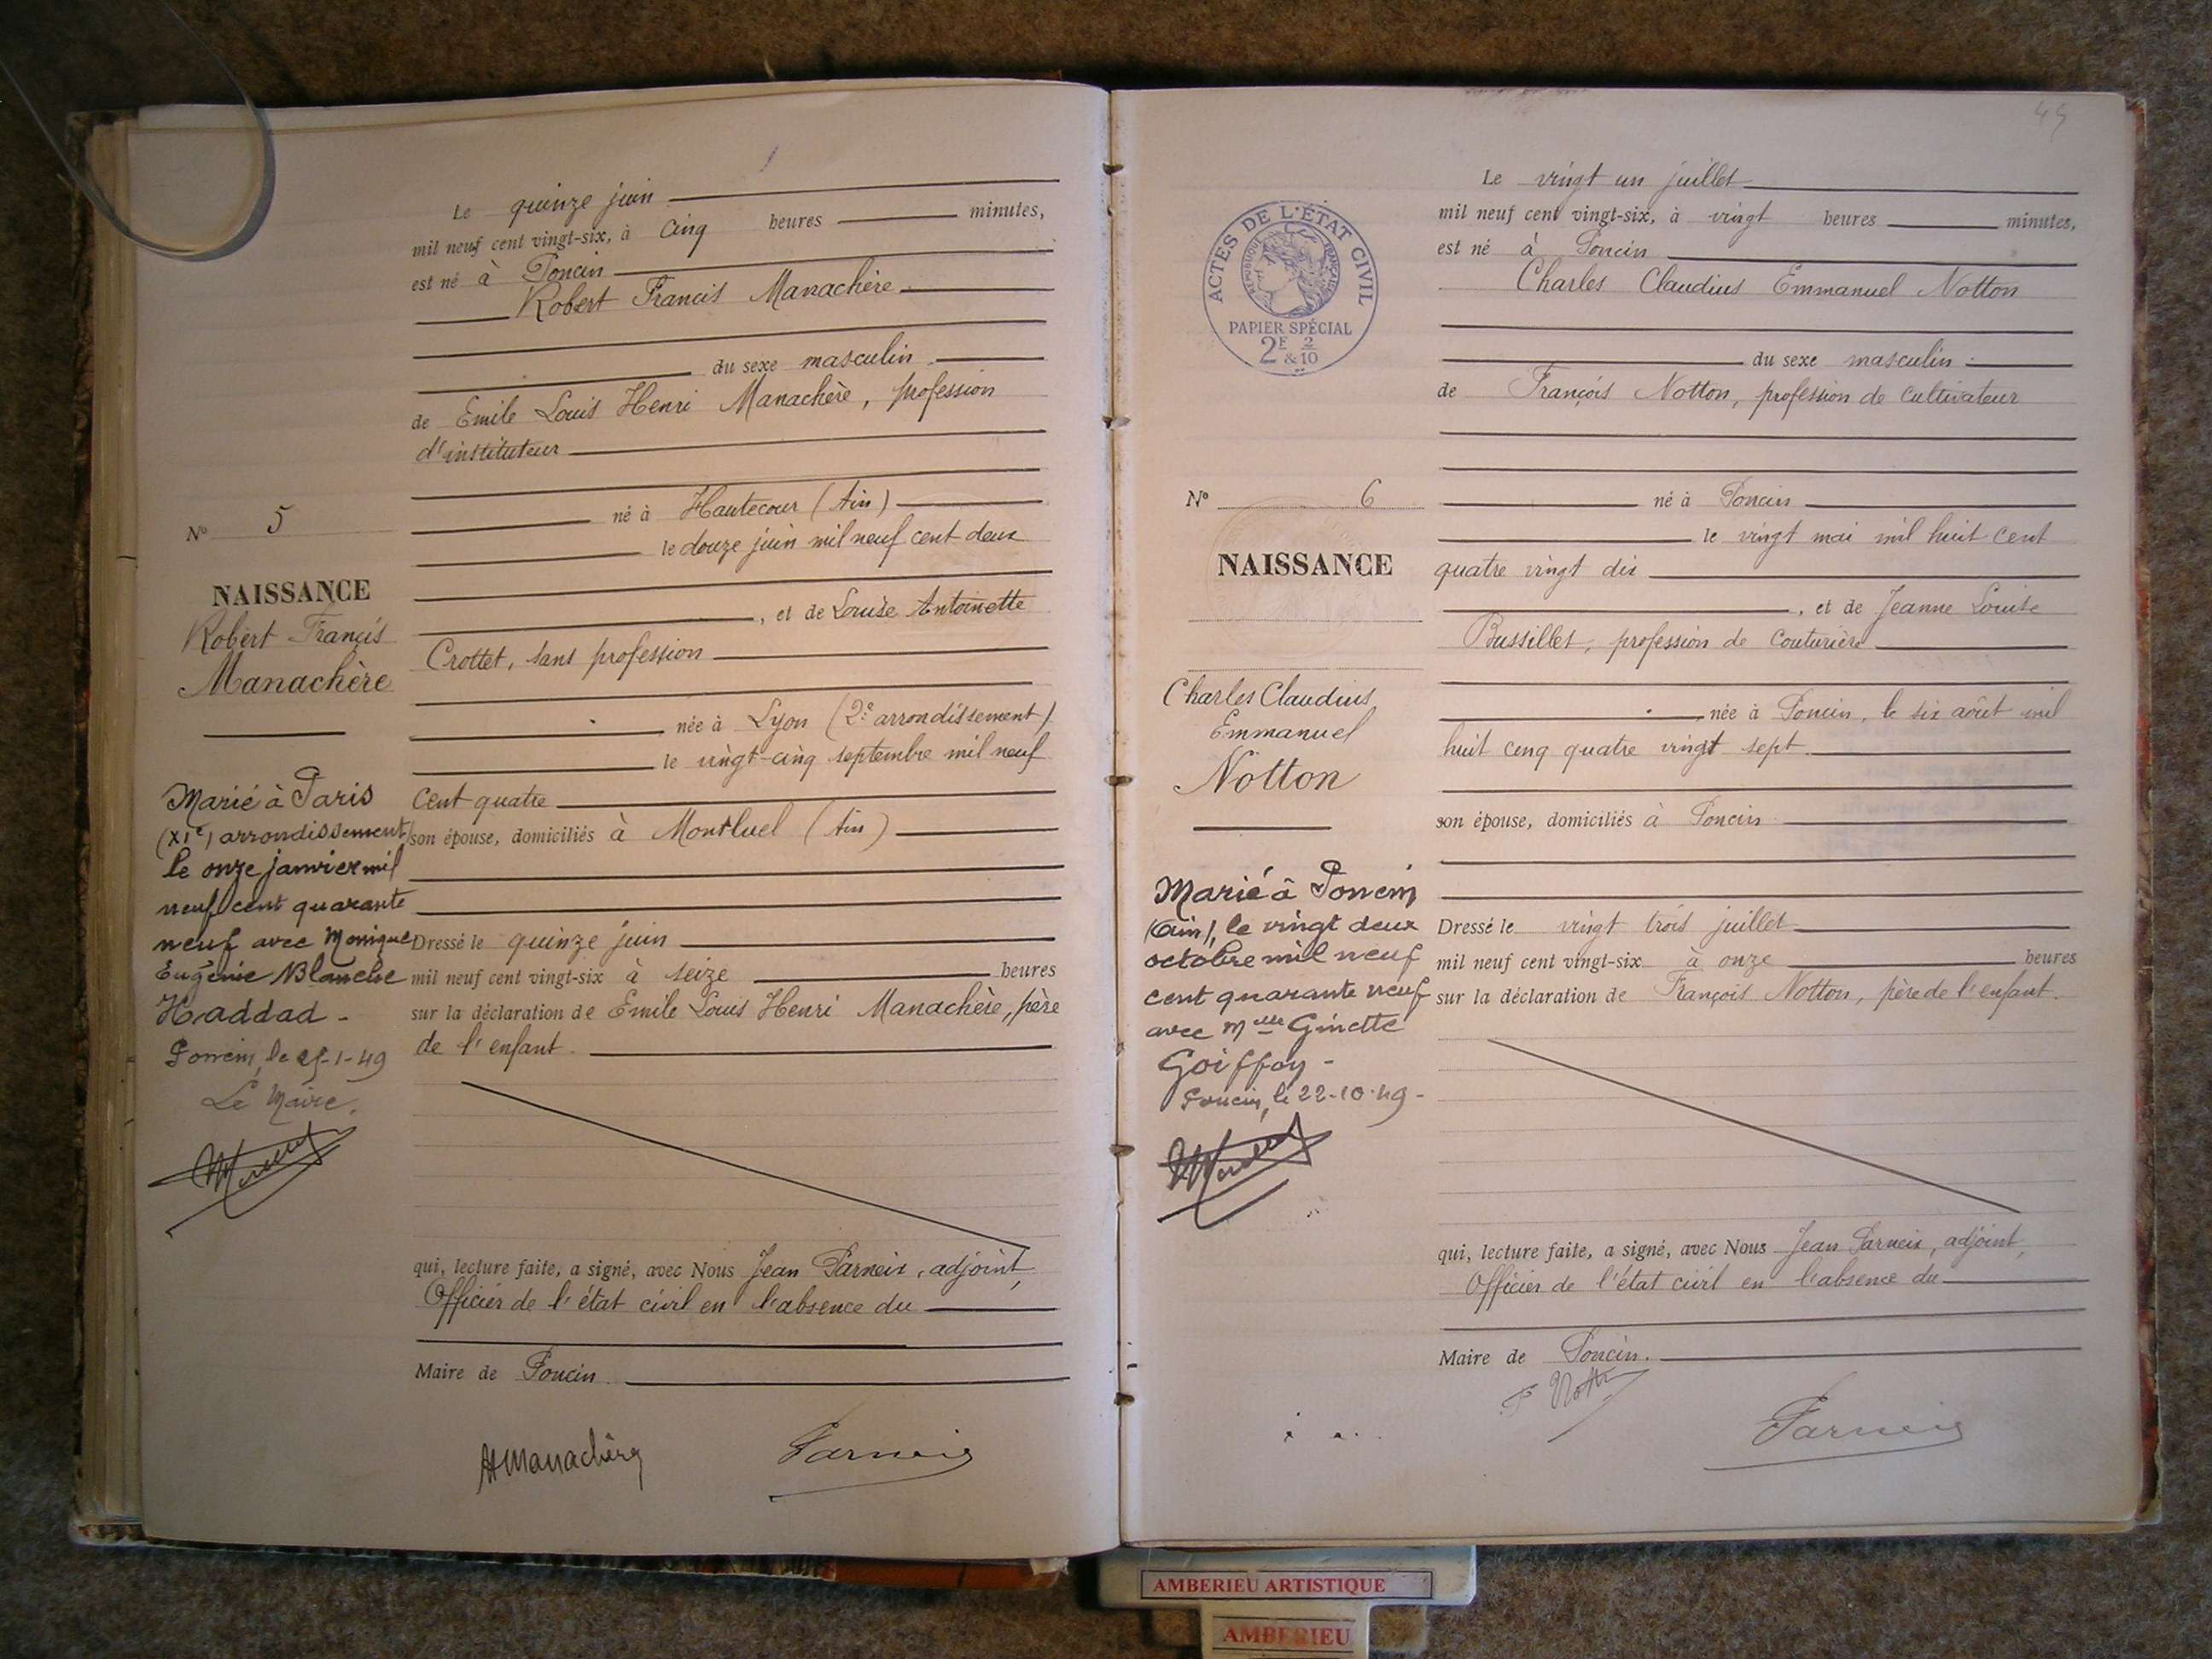 Le quinze juin
mil neuf cent vingt-six, à cinq heures minutes,
est né à Poncin
Robert Francis Manachère
du sexe masculin.
de Emile Louis Henri Manachère, profession
d'instituteur
né à Hautecour (Ain)
le douze juin mil neuf cent deux
, et de Louise Antoinette
Crottet, sans profession
née à Lyon (2e arrondissement)
le vingt-cinq septembre mil neuf
cent quatre
son épouse, domiciliés à Montluel (Ain)
Dressé le quinze juin
mil neuf cent vingt-six à seize heures
sur la déclaration de Emile Louis Henri Manachère, père
de l'enfant.
qui, lecture faite, a signé, avec Nous Jean Parneix, adjoint,
Officier de l'état civil en l'absence du
Maire de Poncin.
HManachère
Parneix
N° 5
NAISSANCE
Robert Francis
Manachère
Marié à Paris
(XIe) arrondissement
le onze janvier mil
neuf cent quarante
neuf avec Monique
Eugénie Blanche
Haddad -
Poncin, le -1-49
Le Maire.
45
Le vingt un juillet
mil neuf cent vingt-six, à vingt heures minutes,
est né à Poncin
Charles Claudius Emmanuel Notton
du sexe masculin.
de François Notton, profession de cultivateur
né à Poncin
le vingt mai mil huit cent
quatre vingt dix
, et de Jeanne Louise
Bussillet, profession de couturière
née à Poncin, le six août mil
huit cinq quatre vingt sept.
son épouse, domiciliés à Poncin
Dressé le vingt trois juillet
mil neuf cent vingt-six à onze heures
sur la déclaration de François Notton, père de l'enfant.
qui, lecture faite, a signé, avec Nous Jean Parneix, adjoint,
Officier de l'état civil en l'absence du
Maire de Poncin.
F Notton
Parneix
ACTES DE L'ÉTAT CIVIL
RÉPUBLIQUE FRANÇAISE
PAPIER SPÉCIAL
2F 2
&10
N° 6
NAISSANCE
Charles Claudius
Emmanuel
Notton
Marié à Poncin
(Ain), le vingt deux
octobre mil neuf
cent quarante neuf
avec Melle Ginette
Goiffon -
Poncin, le 22-10-49-
AMBERIEU ARTISTIQUE
AMBERIEU